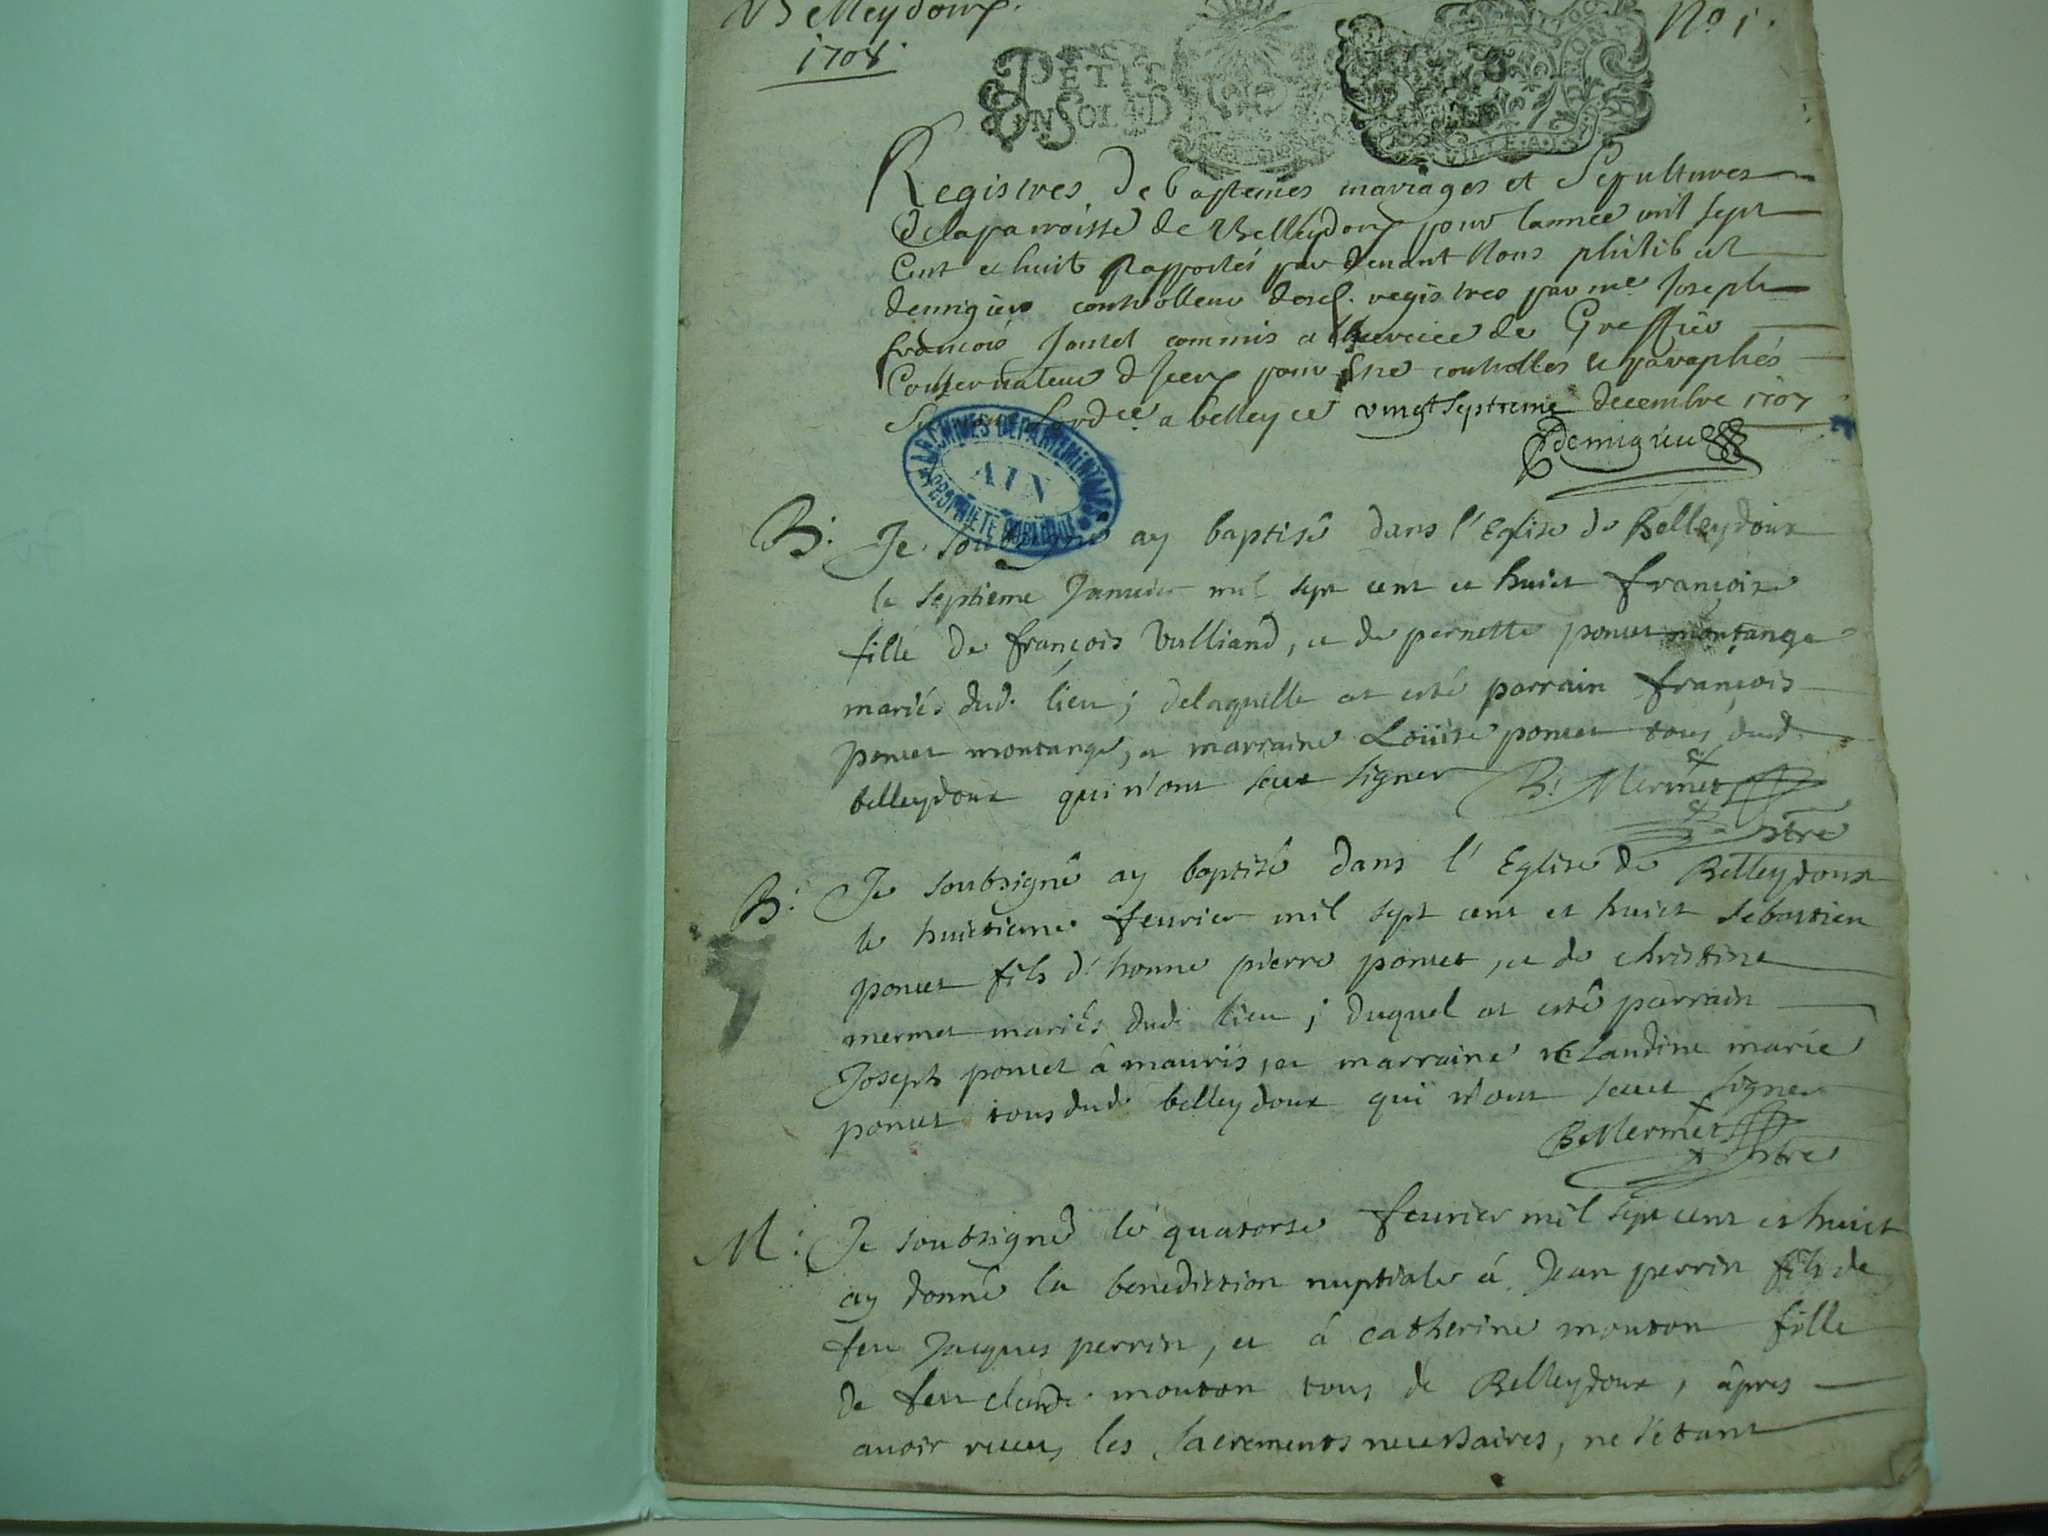 Belleydoux.
N° 1.
1708.
PETIT
EN SOL 4 D
Registres de baptemes mariages et Sepultures
de la parroisse de Belleydoux pour lannée mil sept
Cent et huit Rapportés par devant Nous philibert
demigieu controlleur desd. registres par me Joseph
françois commis a lexercice de Greffier
Conservateur diceux pour estre controllés et paraphés
a belley ce vingtseptieme decembre 1707
demigieu
ARCHIVES DÉPARTEMENTALES
AIN
PROPRIÉTÉ PUBLIQUE
B: Je soubsigné ay baptisé dans l'Eglise de Belleydoux
le septieme Janvier mil sept cent et huict françoise
fille de françois Vulliand, et de pernette poncet montange
mariés dud. lieu; delaquelle at esté parrain françois
poncet montange, et marraine Loüise poncet tous dud.
belleydoux qui n'ont sceut signer B. Mermet
ptre
B: Je soubsigné ay baptisé dans l'Eglise de Belleydoux
le huictieme feurier mil sept cent et huict sebastien
poncet fils d'honne pierre poncet, et de christine
mermet mariés dud. lieu; duquel at esté parrain
Joseph poncet à mauris, et marraine claudine marie
poncet tous dud. belleydoux qui n'ont sceut signer
B Mermet
ptre
M: Je soubsigné le quatorse feurier mil sept cent et huict
ay donné la benediction nuptiale á Jean perrin fils de
feu Jacques perrin, et á catherine mouton fille
de feu claude mouton tous de Belleydoux, âpres
auoir receu les sacrements necessaires, ne s'étant